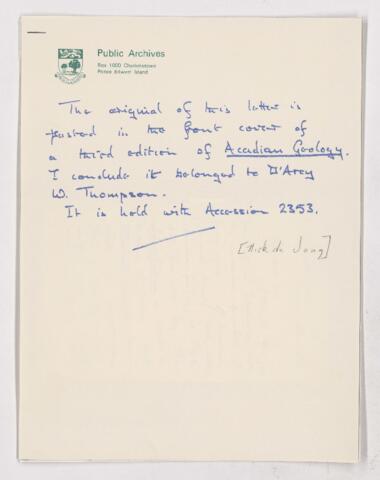 Public Archives
Box 1000 Charlottetown
Prince Edward Island
The original of this letter is
pasted in the front cover of
a third edition of Acadian Geology.
I conclude it belonged to D'Arcy
W. Thompson.
It is held with Accession 2353.
[Nick de Jong]